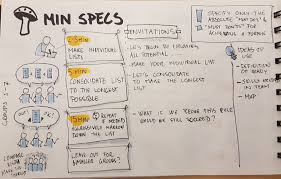 MIN SPECS
SPECIFY ONLY THE
ABSOLUTE "MUST DO'S" &
"MUST DONT'S" FOR
ACHIEVING A PURPOSE
GROUPS 4-7
INVITATIONS
MAKE INDIVIDUAL
LIST
- LET'S BEGIN BY
ALL POTENTIAL
- MAKE YOUR INDIVIDUAL LIST
5 MIN
CONSOLIDATE LIST
TO THE LONGEST
POSSIBLE
- LET'S CONSOLIDATE
TO MAKE THE LONGEST
LIST
15 MIN
REPEAT
IF NEEDED
AGGRESSIVELY NARROW
DOWN THE LIST
- WHAT IF WE
THIS RULE
WOULD WE STILL SUCCEED?
OUT
OK!
COMPARE
GROUPS?
IDEAS OF
USE
- DEFINITION
OF READY
- SKILLS NEEDED
IN TEAM
- MVP